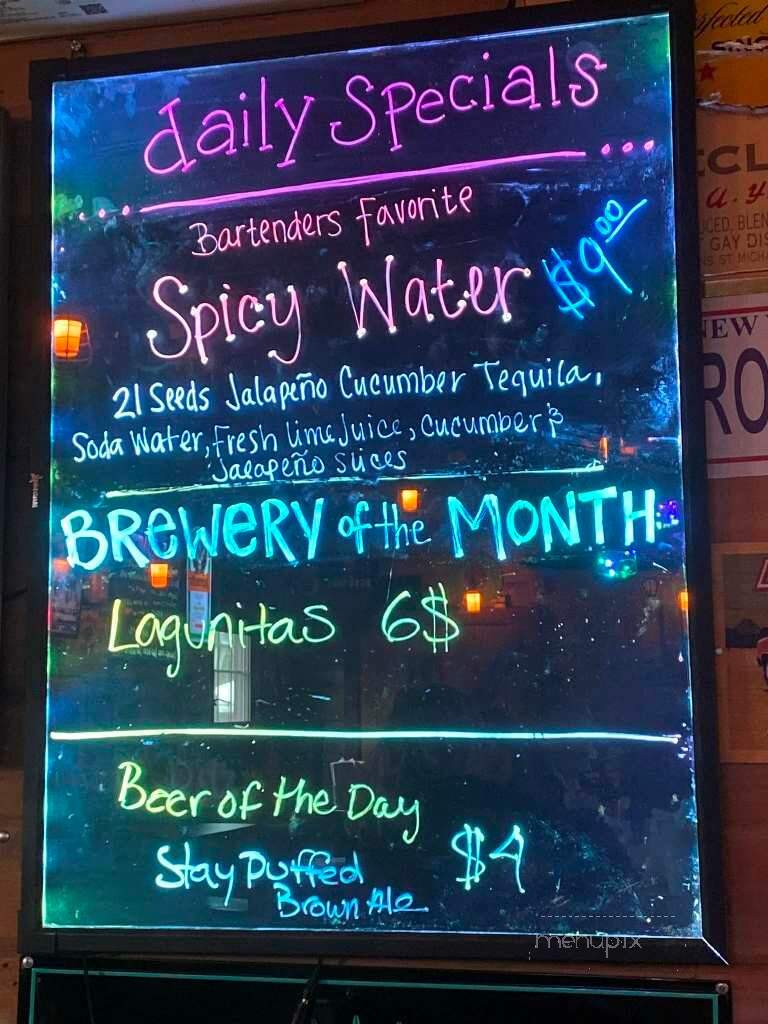 daily Specials
...
...
Bartenders Favorite
Spicy Water $9.00
21 Seeds Jalapeño Cucumber Tequila,
Soda Water, Fresh lime Juice, Cucumber &
Jalapeño Slices
BREWERY of the MONTH
Lagunitas 6$
Beer of the Day
Stay Puffed $4
Brown Ale
menupix
NEW
RO